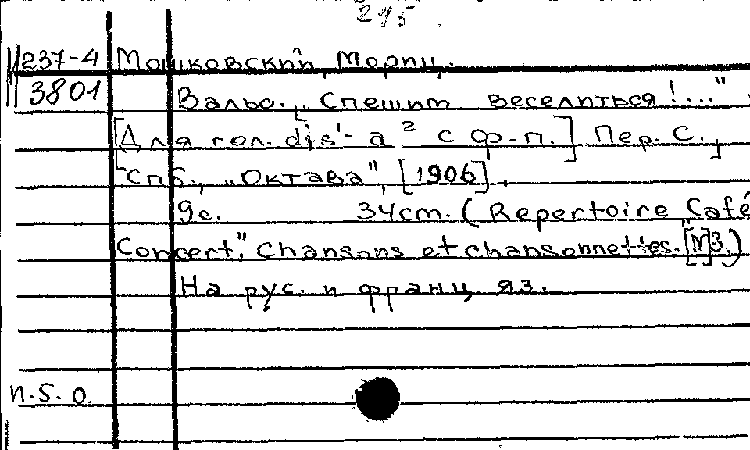 295.
М237-4 Мошковский, Мориц.
3801 Вальс. „Спешит веселиться!..."
[Для гол. dis¹- a² с ф-п.] Пер. С.,
СПб., „Октава", [1906].
9с. 34cm. (Repertoire „Café
Concert". Chansons et chansonnettes. [N]3.)
На рус. и франц. яз.
n.S.O.